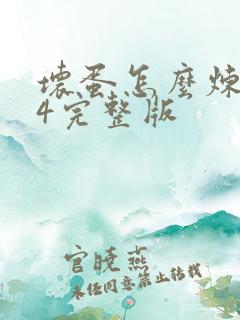 壞蛋怎麼煉
4完整版
官晓燕
未经同意禁止转载